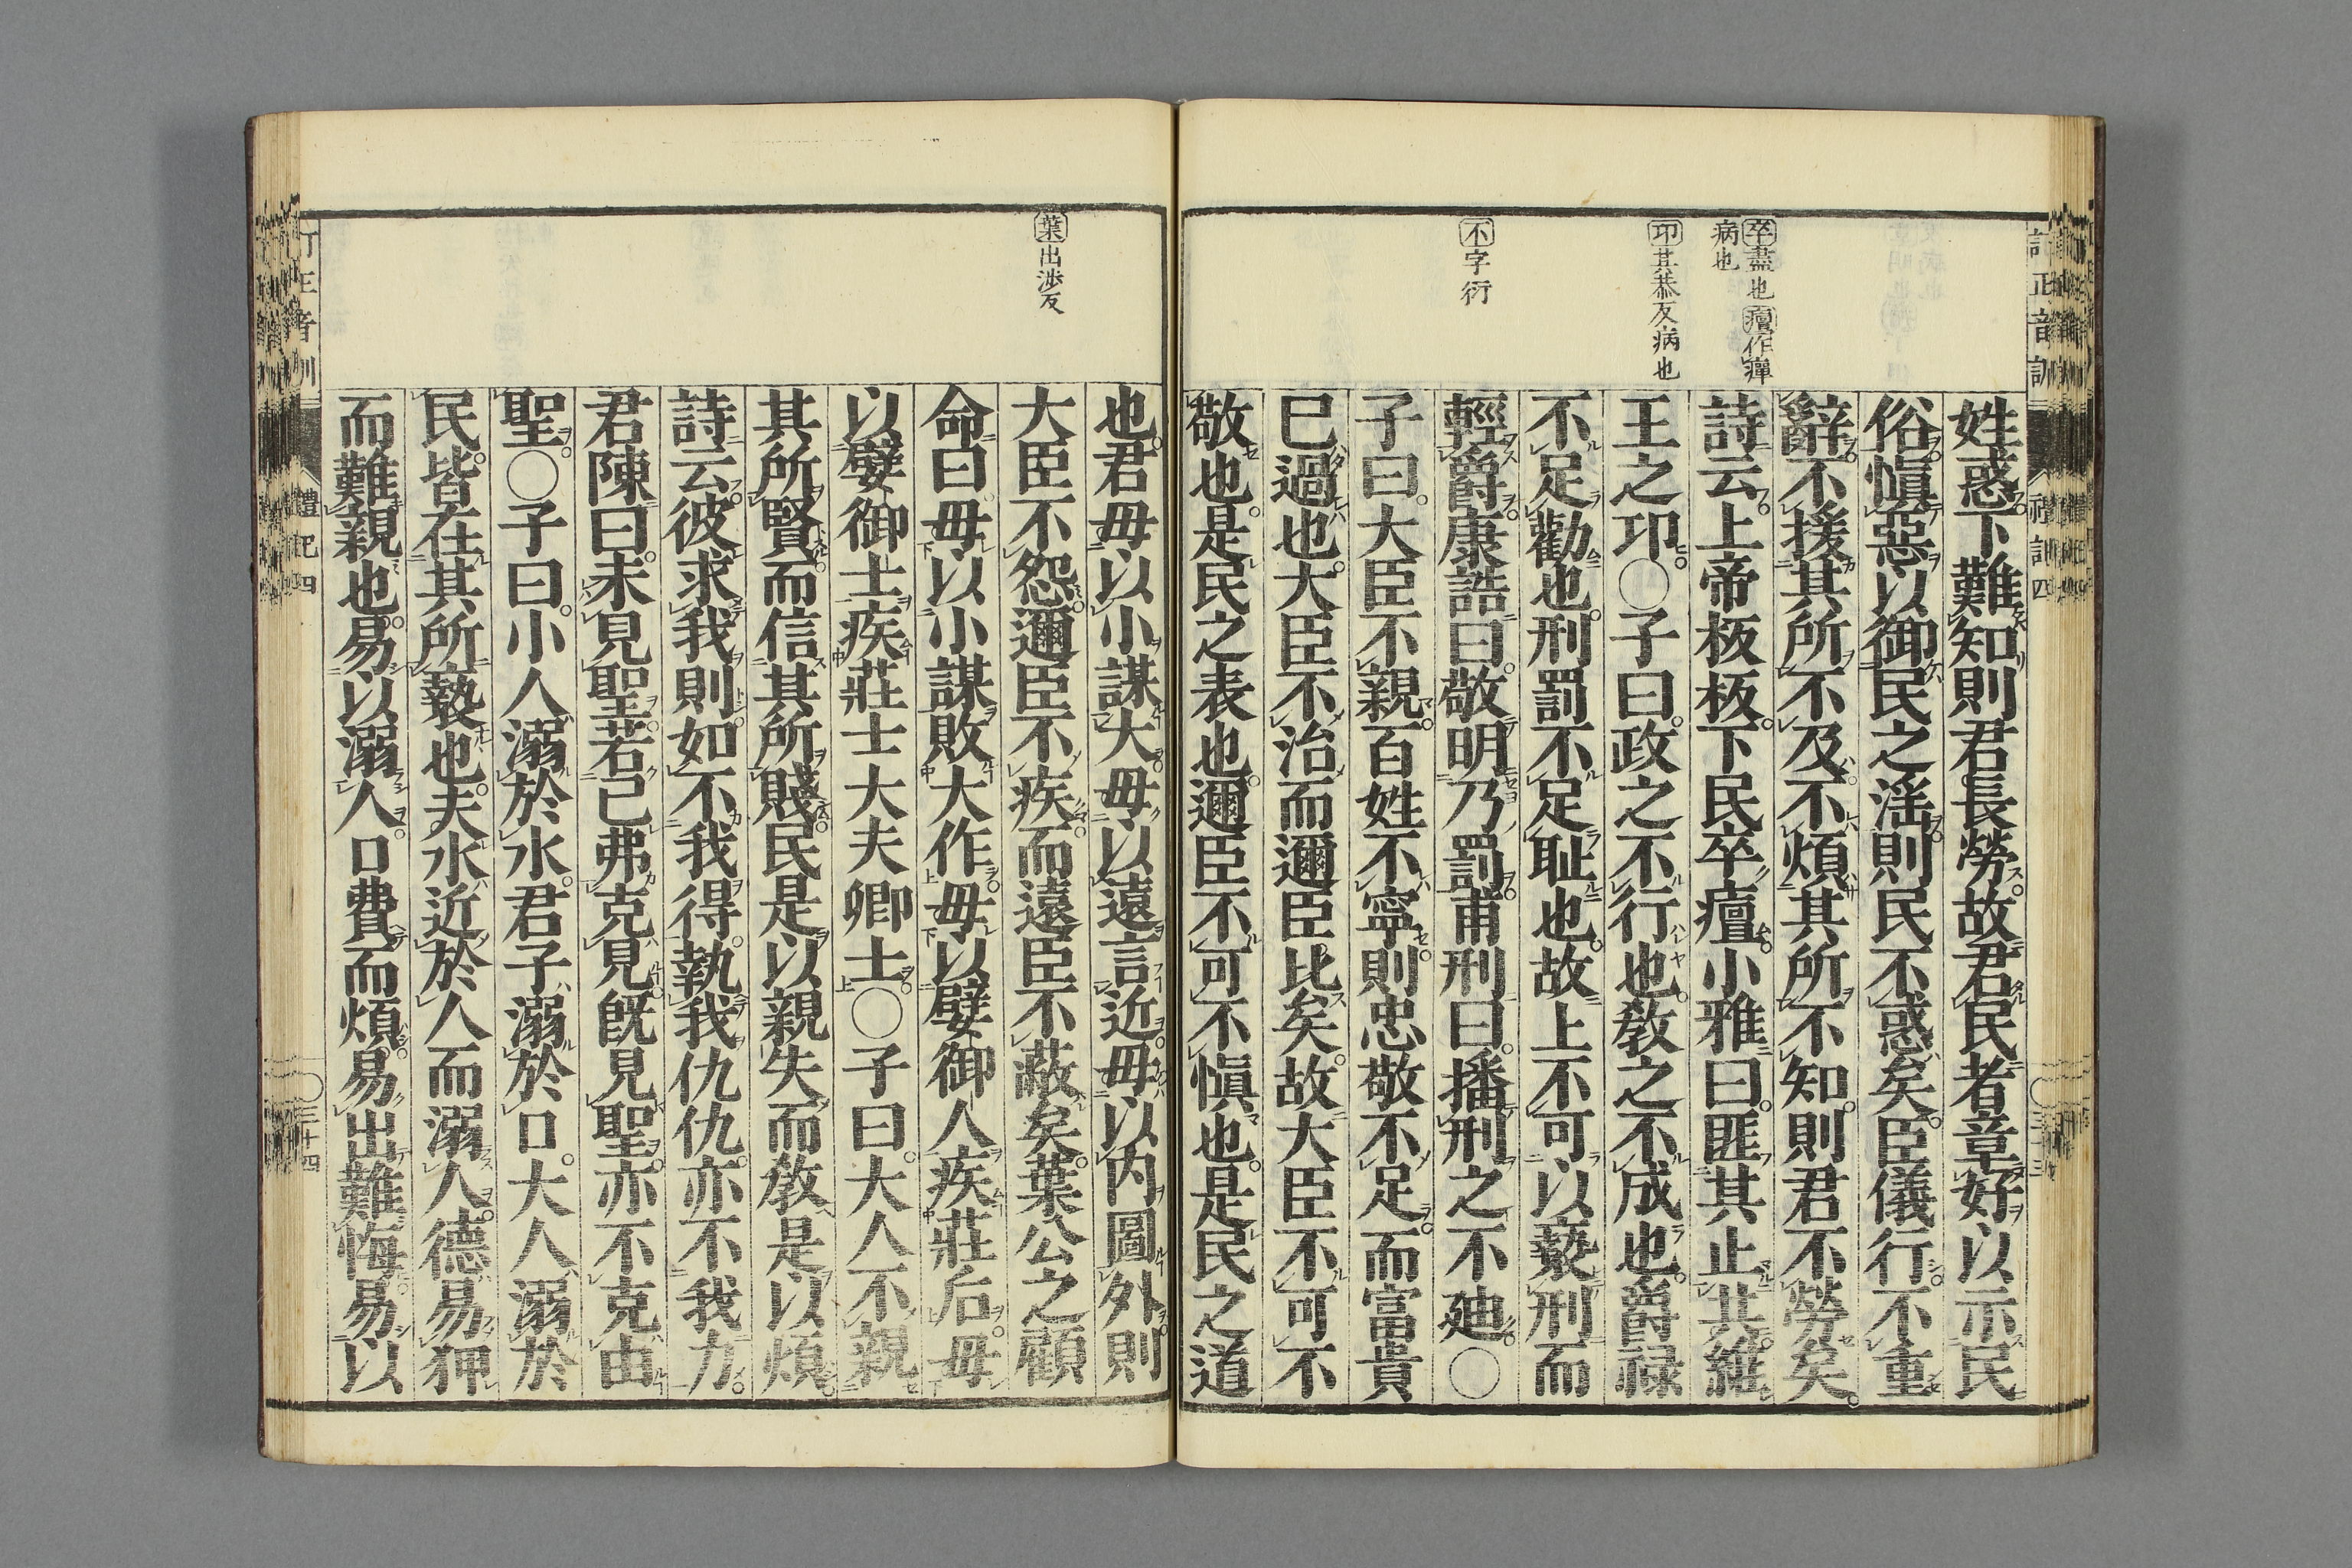 卒盡也 癉作癉
病也
卭其恭反病也
不字衍
姓惑下難知則君長勞故君民者章好以示民
俗愼惡以御民之淫則民不惑矣臣儀行不重
辭不援其所不及不煩其所不知則君不勞矣
詩云上帝板板下民卒癉小雅曰匪其止共維
王之卭○子曰政之不行也敎之不成也爵祿
不足勸也刑罰不足耻也故上不可以褻刑而
輕爵康誥曰敬明乃罰甫刑曰播刑之不迪○
子曰大臣不親百姓不寧則忠敬不足而富貴
已過也大臣不治而邇臣比矣故大臣不可不
敬也是民之表也邇臣不可不愼也是民之道
葉出渉反
也君毋以小謀大毋以遠言近毋以内圖外則
大臣不怨邇臣不疾而遠臣不蔽矣葉公之顧
命曰毋以小謀敗大作毋以嬖御人疾莊后毋
以嬖御士疾莊士大夫卿士○子曰大人不親
其所賢而信其所賤民是以親失而敎是以煩
詩云彼求我則如不我得執我仇仇亦不我力
君陳曰未見聖若己弗克見旣見聖亦不克由
聖○子曰小人溺於水君子溺於口大人溺於
民皆在其所褻也夫水近於人而溺人德易狎
而難親也易以溺人口費而煩易出難悔易以
訂正音訓 禮記四 三十四